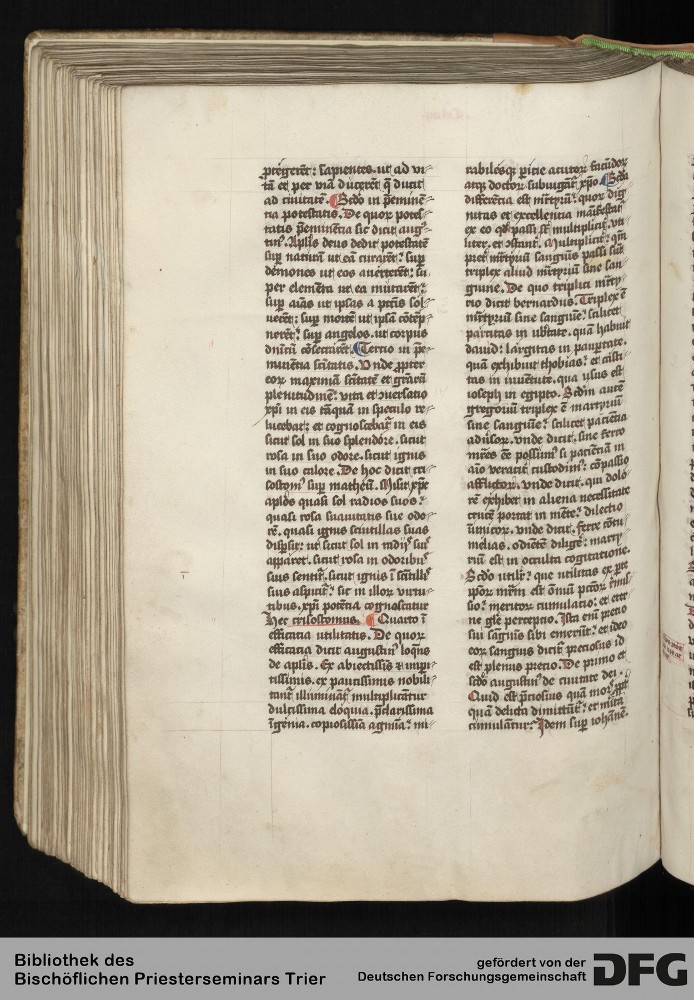 ptegerēt: sapientes. ut ad vi-
tā et per viā ducerēt q̄ ducit
ad civitatē. Scdo in p̄eminē-
tia potestatis. De quor potes-
tatis p̄eminentia sic dicit aug⁹-
tin⁹. Aplis deus dedit potestatē
sup naturā ut eā curarēt: sup
demones ut eos averterēt: su-
per elemēta ut ea mutarēt:
sup aīas ut ipsas a pctīs sol-
verēt: sup mortē ut ipsā cōtēp-
nerēt: sup angelos. ut corpus
dn̄icū cōsecrarēt. Tercio in p̄e-
minētia scītatis. Unde propter
eor maximā scītatē et grā́rū
plenitudinē: vita et ɔversatio
xp̄i in eis tāquā in speculo re-
lucebat: et cognoscebat in eis
sicut sol in suo splendore. sicut
rosa in suo odore. sicut ignis
in suo calore. De hoc dicit cri-
sostom⁹ sup matheū. Misit xp̄c
aplōs quasi sol radios suos:
quasi rosa suavitatis sue odo-
rē. quasi ignis scintillas suas
dispsit: ut sicut sol in radijs suis
apparet. sicut rosa in odoribus
suis sentit. sicut ignis ī scītillis
suis aspicit: sic in illor virtu-
tibus. xp̄i potētia cognoscatur
Hec crisostomus. Quarto ī
efficatia utilitatis. De quor
efficatia dicit augustin⁹ loquēs
de aplis. Ex abiectissis et impi-
tissimis. ex paucissimis nobili-
tant illuminant multiplicātur
dulcissima eloquia. p̄clarissima
īgenia. copiosissia agmīa: mi-
rabilesq; pitie acutor facūdor
atq; doctor subiugāt xp̄o. Scda
differētia est mr̄tyrū: quor dig-
nitas et excellentia māifestat
ex eo q̄ passi sūt multiplicit. uti-
liter. et ɔstant. Multiplicit: qm̄
preter mr̄tyriū sangnīs passi sūt
triplex aliud mr̄tyriū sine san-
gnine. De quo triplici mr̄ty-
rio dicit bernardus. Triplex ē
mr̄tyriū sine sanguīe: scilicet
parcitas in ub̄tate. quā habuit
david: largitas in paupertate.
quā exhibuit thobias: et casti-
tas in iuvētute. qua usus est
ioseph in egipto. Scdm autē
gregoriū triplex ē martyriū
sine sanguīe: scilicet paciētia
adv̄sor. unde dicit. sine ferro
mr̄es ēē possum⁹ si paciētiā in
aīo veracit custodim⁹: cōpassio
afflictor. unde dicit. qui dolo-
rē exhibet in aliena necessitate
crucē portat in mēte: dilectio
inimicor. unde dicit. ferre cōtu-
melias. odiētē diligē: marty-
riū est in occulta cogitatione.
Scdo utilit: que utilitas ex pte
ipor mr̄m est oīm pctōr remis-
sio: meritor cumulatio: et eter-
ne glīe perceptio. Ista enī precio
sui sagnīs sibi emerūt: et ideo
eor sangnis dicit preciosus id
est plenus precio. De primo et
scdo augustin⁹ de civitate dei.
Quid est p̄ciosius quā mors ppt
quā delicta dimittūt: et m̄ita
cumulātur: Idem sup iohānē.
Bibliothek des
Bischöflichen Priesterseminars Trier
gefördert von der
Deutschen Forschungsgemeinschaft
DFG